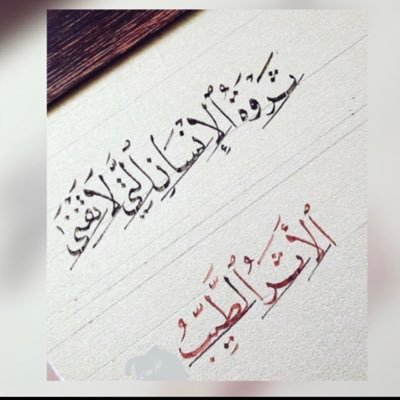 ثَرْوَةُ الْإِنْسَانِ الَّتِي لَا تَفْنَىٰ
الْأَثَرُ الطَّيِّبُ